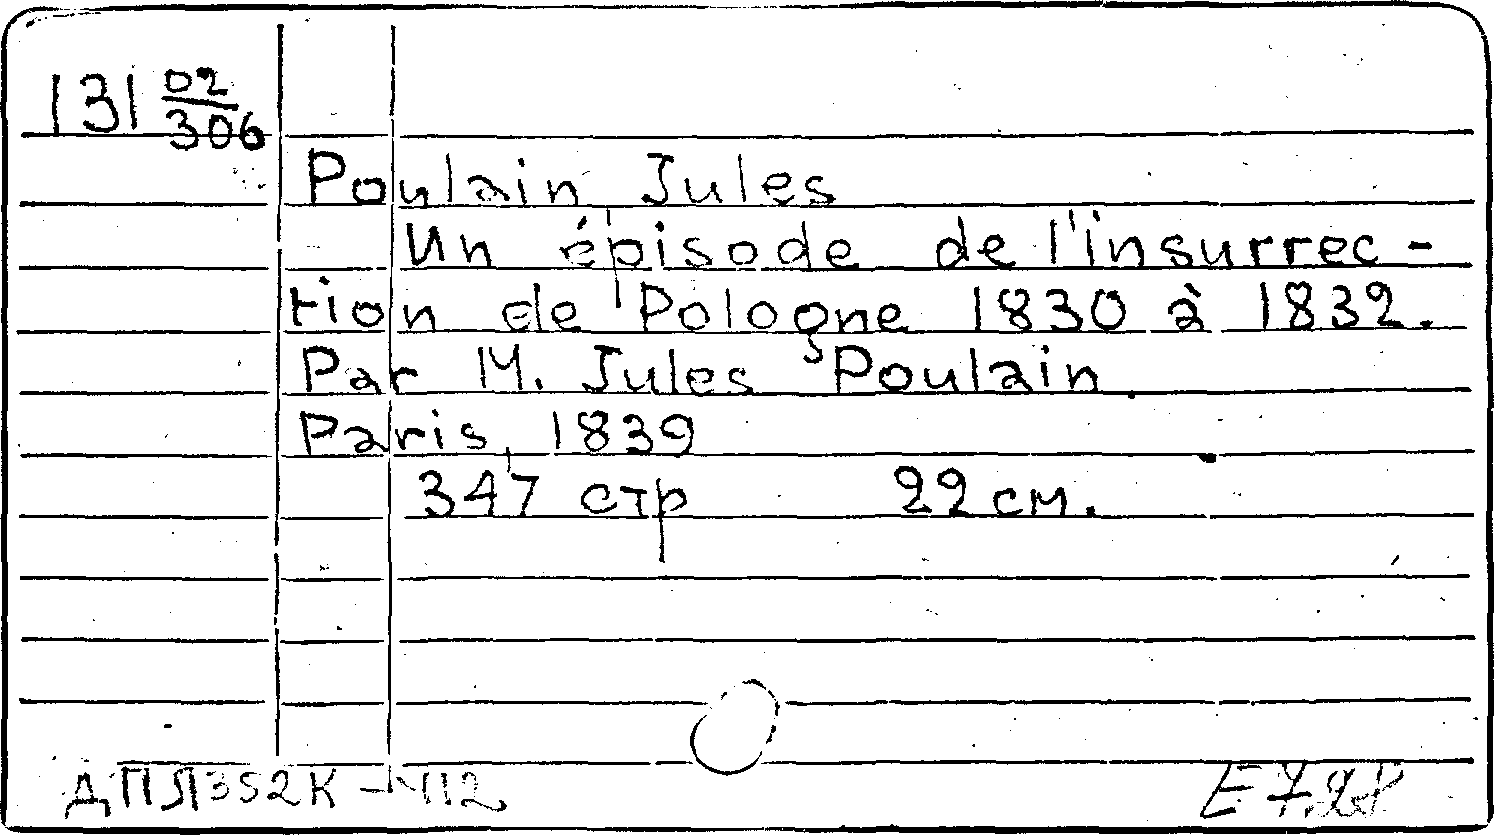 131 02/306
Poulain Jules
Un épisode de l'insurrec-
tion de Pologne 1830 à 1832.
Par M. Jules Poulain
Paris, 1839
347 стр 22 см.